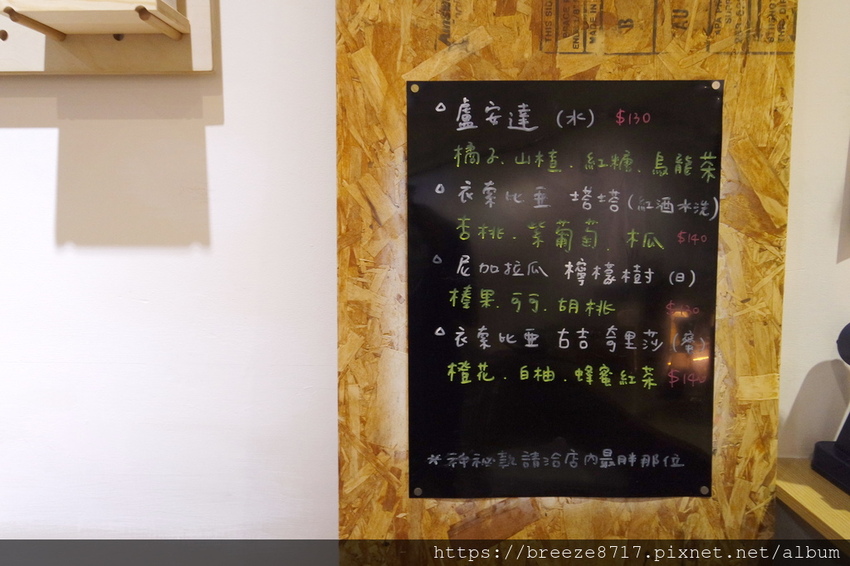 盧安達 (水) $130
橘子.山楂.紅糖.烏龍茶
衣索比亞 塔塔(紅酒水洗)
杏桃.紫葡萄.木瓜 $140
尼加拉瓜 檸檬樹 (日)
榛果.可可.胡桃 $130
衣索比亞 古吉 奇里莎 (蜜)
橙花.白柚.蜂蜜紅茶 $140
*神祕款請洽店內最胖那位
https://breeze8717.pixnet.net/album